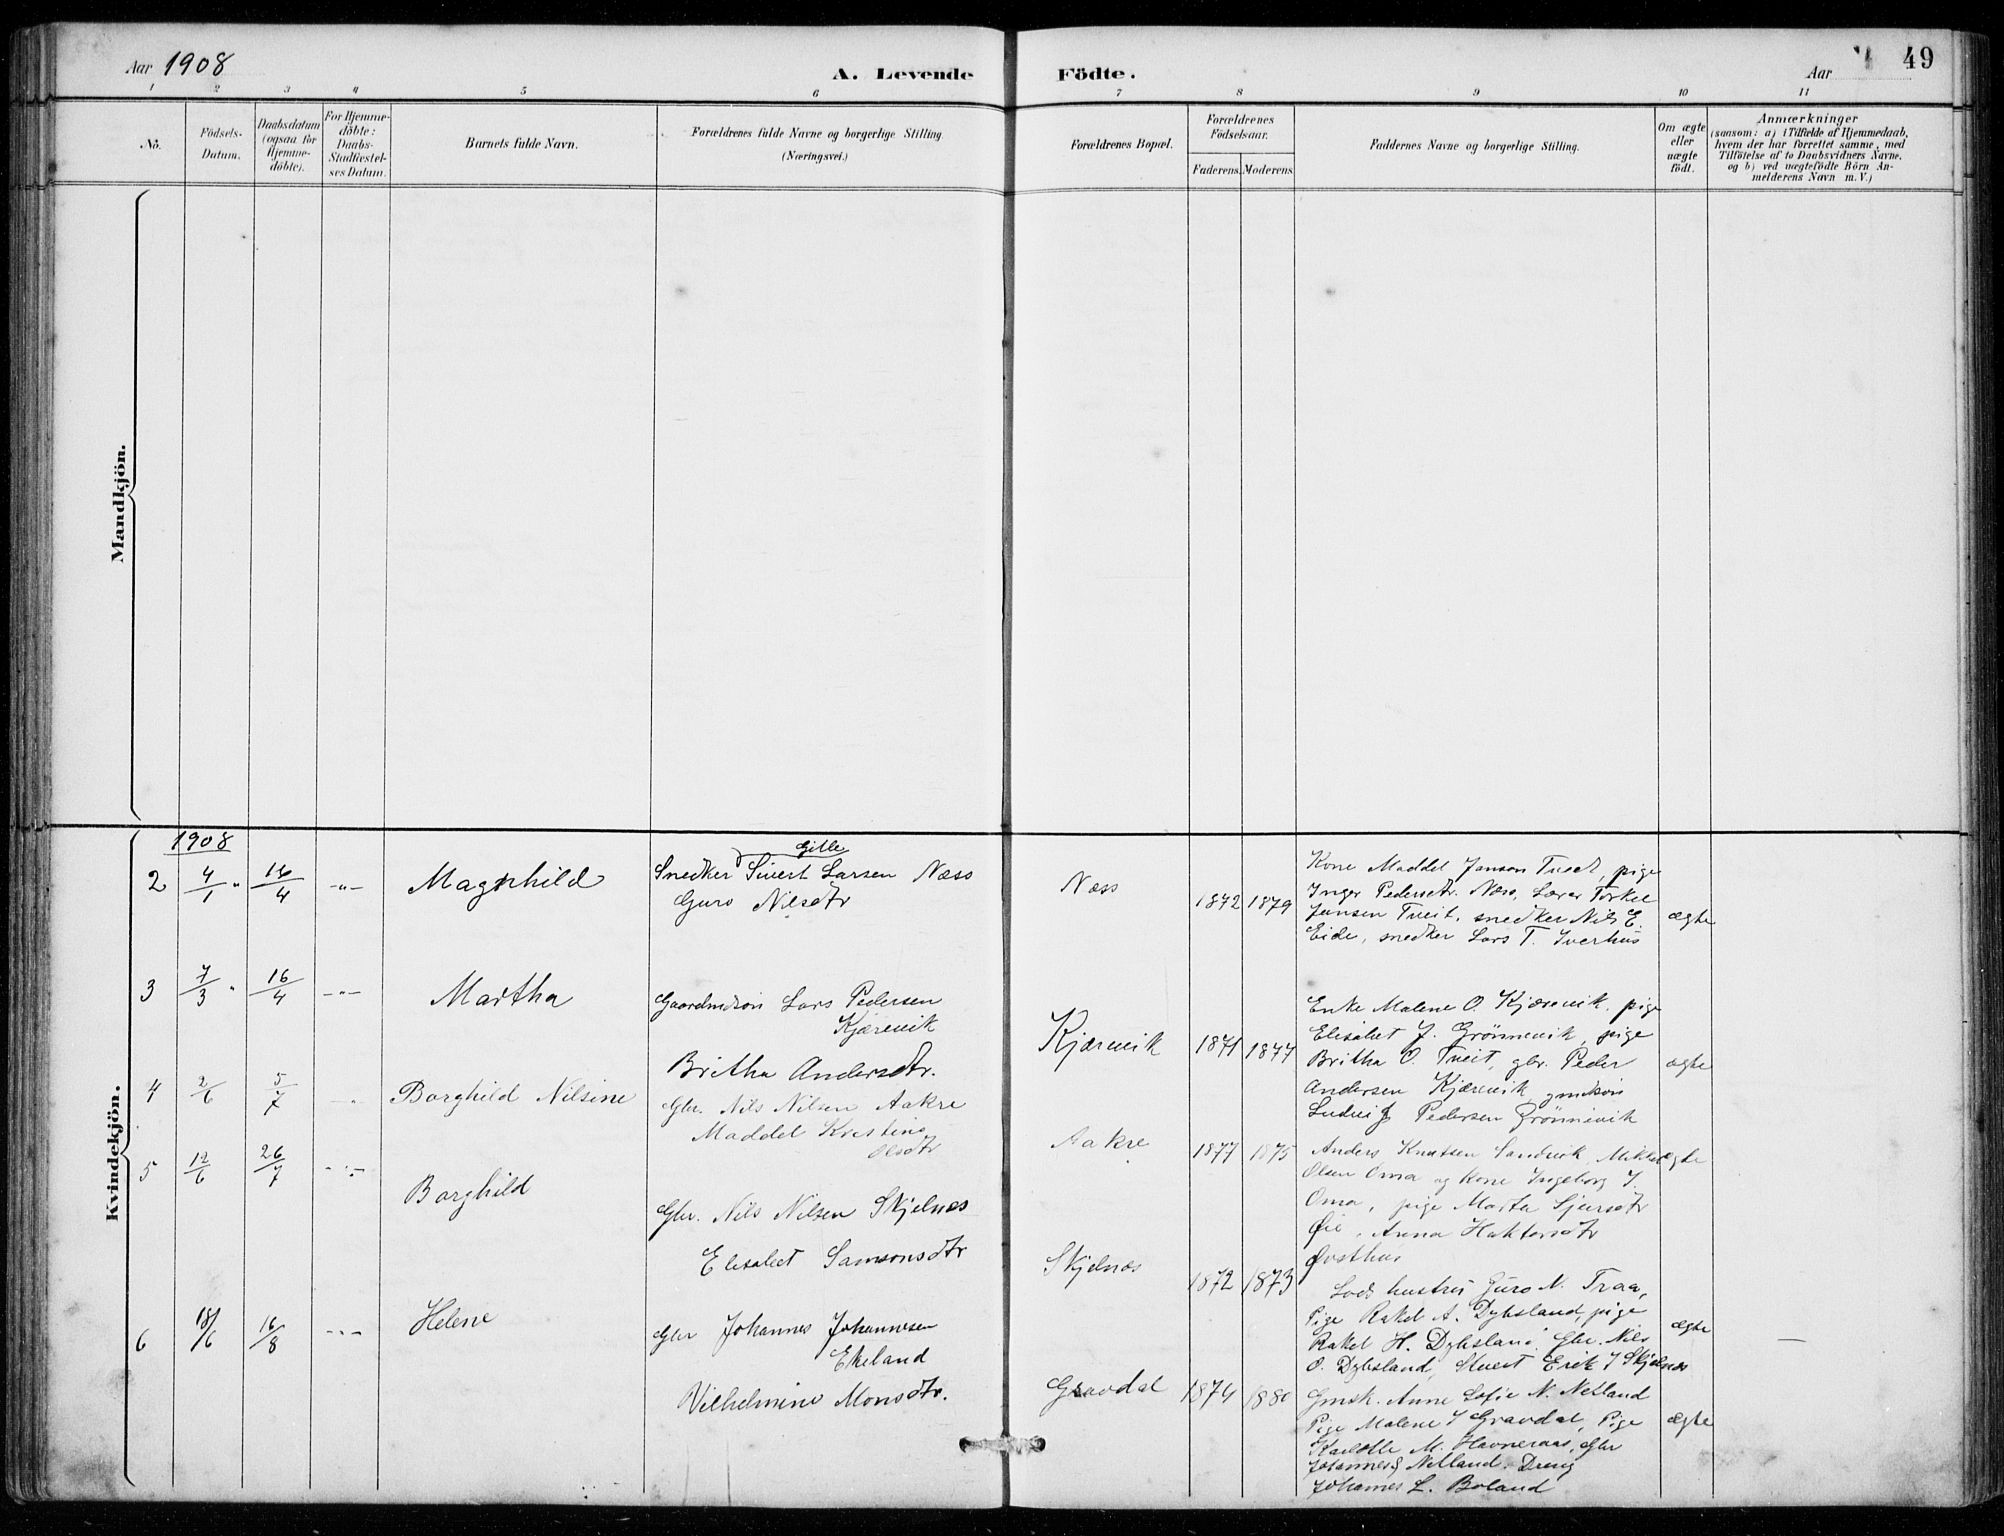 Aar 1908
A. Levende Födte.
Aar
49
1 2 3 4 5 6 7 8 9 10 11
No.
Födsels-Datum.
Daabsdatum (ogsaa for Hjemme-döbte).
For Hjemme-döbte: Daabs-Stadfæstel-ses Datum.
Barnets fulde Navn.
Forældrenes fulde Navne og borgerlige Stilling.
(Næringsvei.)
Forældrenes Bopæl.
Forældrenes Födselsaar.
Faderens. Moderens.
Faddernes Navne og borgerlige Stilling.
Om ægte eller uægte födt.
Anmærkninger
(saasom: a) i Tilfælde af Hjemmedaab,
hvem der har forrettet samme, med
Tilföielse af to Daabsvidners Navne,
og b) ved uægtefödte Börn An-
melderens Navn m. V.)
Mandkjön.
Kvindekjön.
1908
2 4/1 " 16/4 -"- Magnhild
Gitle
Snedker Sivert Larsen Næss
Guro Nilsdtr
Næss 1872 1879
Kone Maddel Janson Tveit, pige
Inger Pedersdtr. Næss, Lærer Torkel
Jansen Tveit, snedker Nils E.
Eide, snedker Lars T. Iverhus
ægte
3 7/3 " 16/4 -"- Martha
Gaardmdsön Lars Pedersen
Kjærevik
Britha Andersdtr.
Kjærevik 1871 1877
Enke Malene O. Kjærevik, pige
Elisabet J. Grönnevik, pige
Britha O. Tveit, gbr. Peder
Andersen Kjærevik, gmdsön
Ludvig Pedersen Grönnevik
ægte
4 2/6 5/7 " Borghild Nilsine
Gbr. Nils Nilsen Aakre
Maddel Kristine
Olsdtr
Aakre 1877 1875
Anders Knutsen Sandvik, Mikkel
Olsen Oma og Kone Ingeborg J.
Oma, pige Marta Sjursdtr
Øie, Anna Haktorsdtr
Øvsthus
ægte
5 12/6 26/7 -"- Borghild
Gbr. Nils Nilsen Skjelnes
Elisabet Samsonsdtr
Skjelnæs 1872 1873
Lods hustru Guro N. Traa,
Pige Rakel A. Dybsland, pige
Rakel H. Dybsland, Gbr. Nils
O. Dybsland, Erik J Skjelnæs
ægte —
6 18/6 16/8 -"- Helene
Gbr Johannes Johannesen
Ekeland
Vilhelmine Monsdtr.
Gravdal 1874 1880
Gmsk. Anne Sofie N. Netland
Pige Malene J Gravdal, Pige
Karlotte M. Havneraas, Gbr
Johannes J Netland. Dreng
Johannes L. Boland
ægte